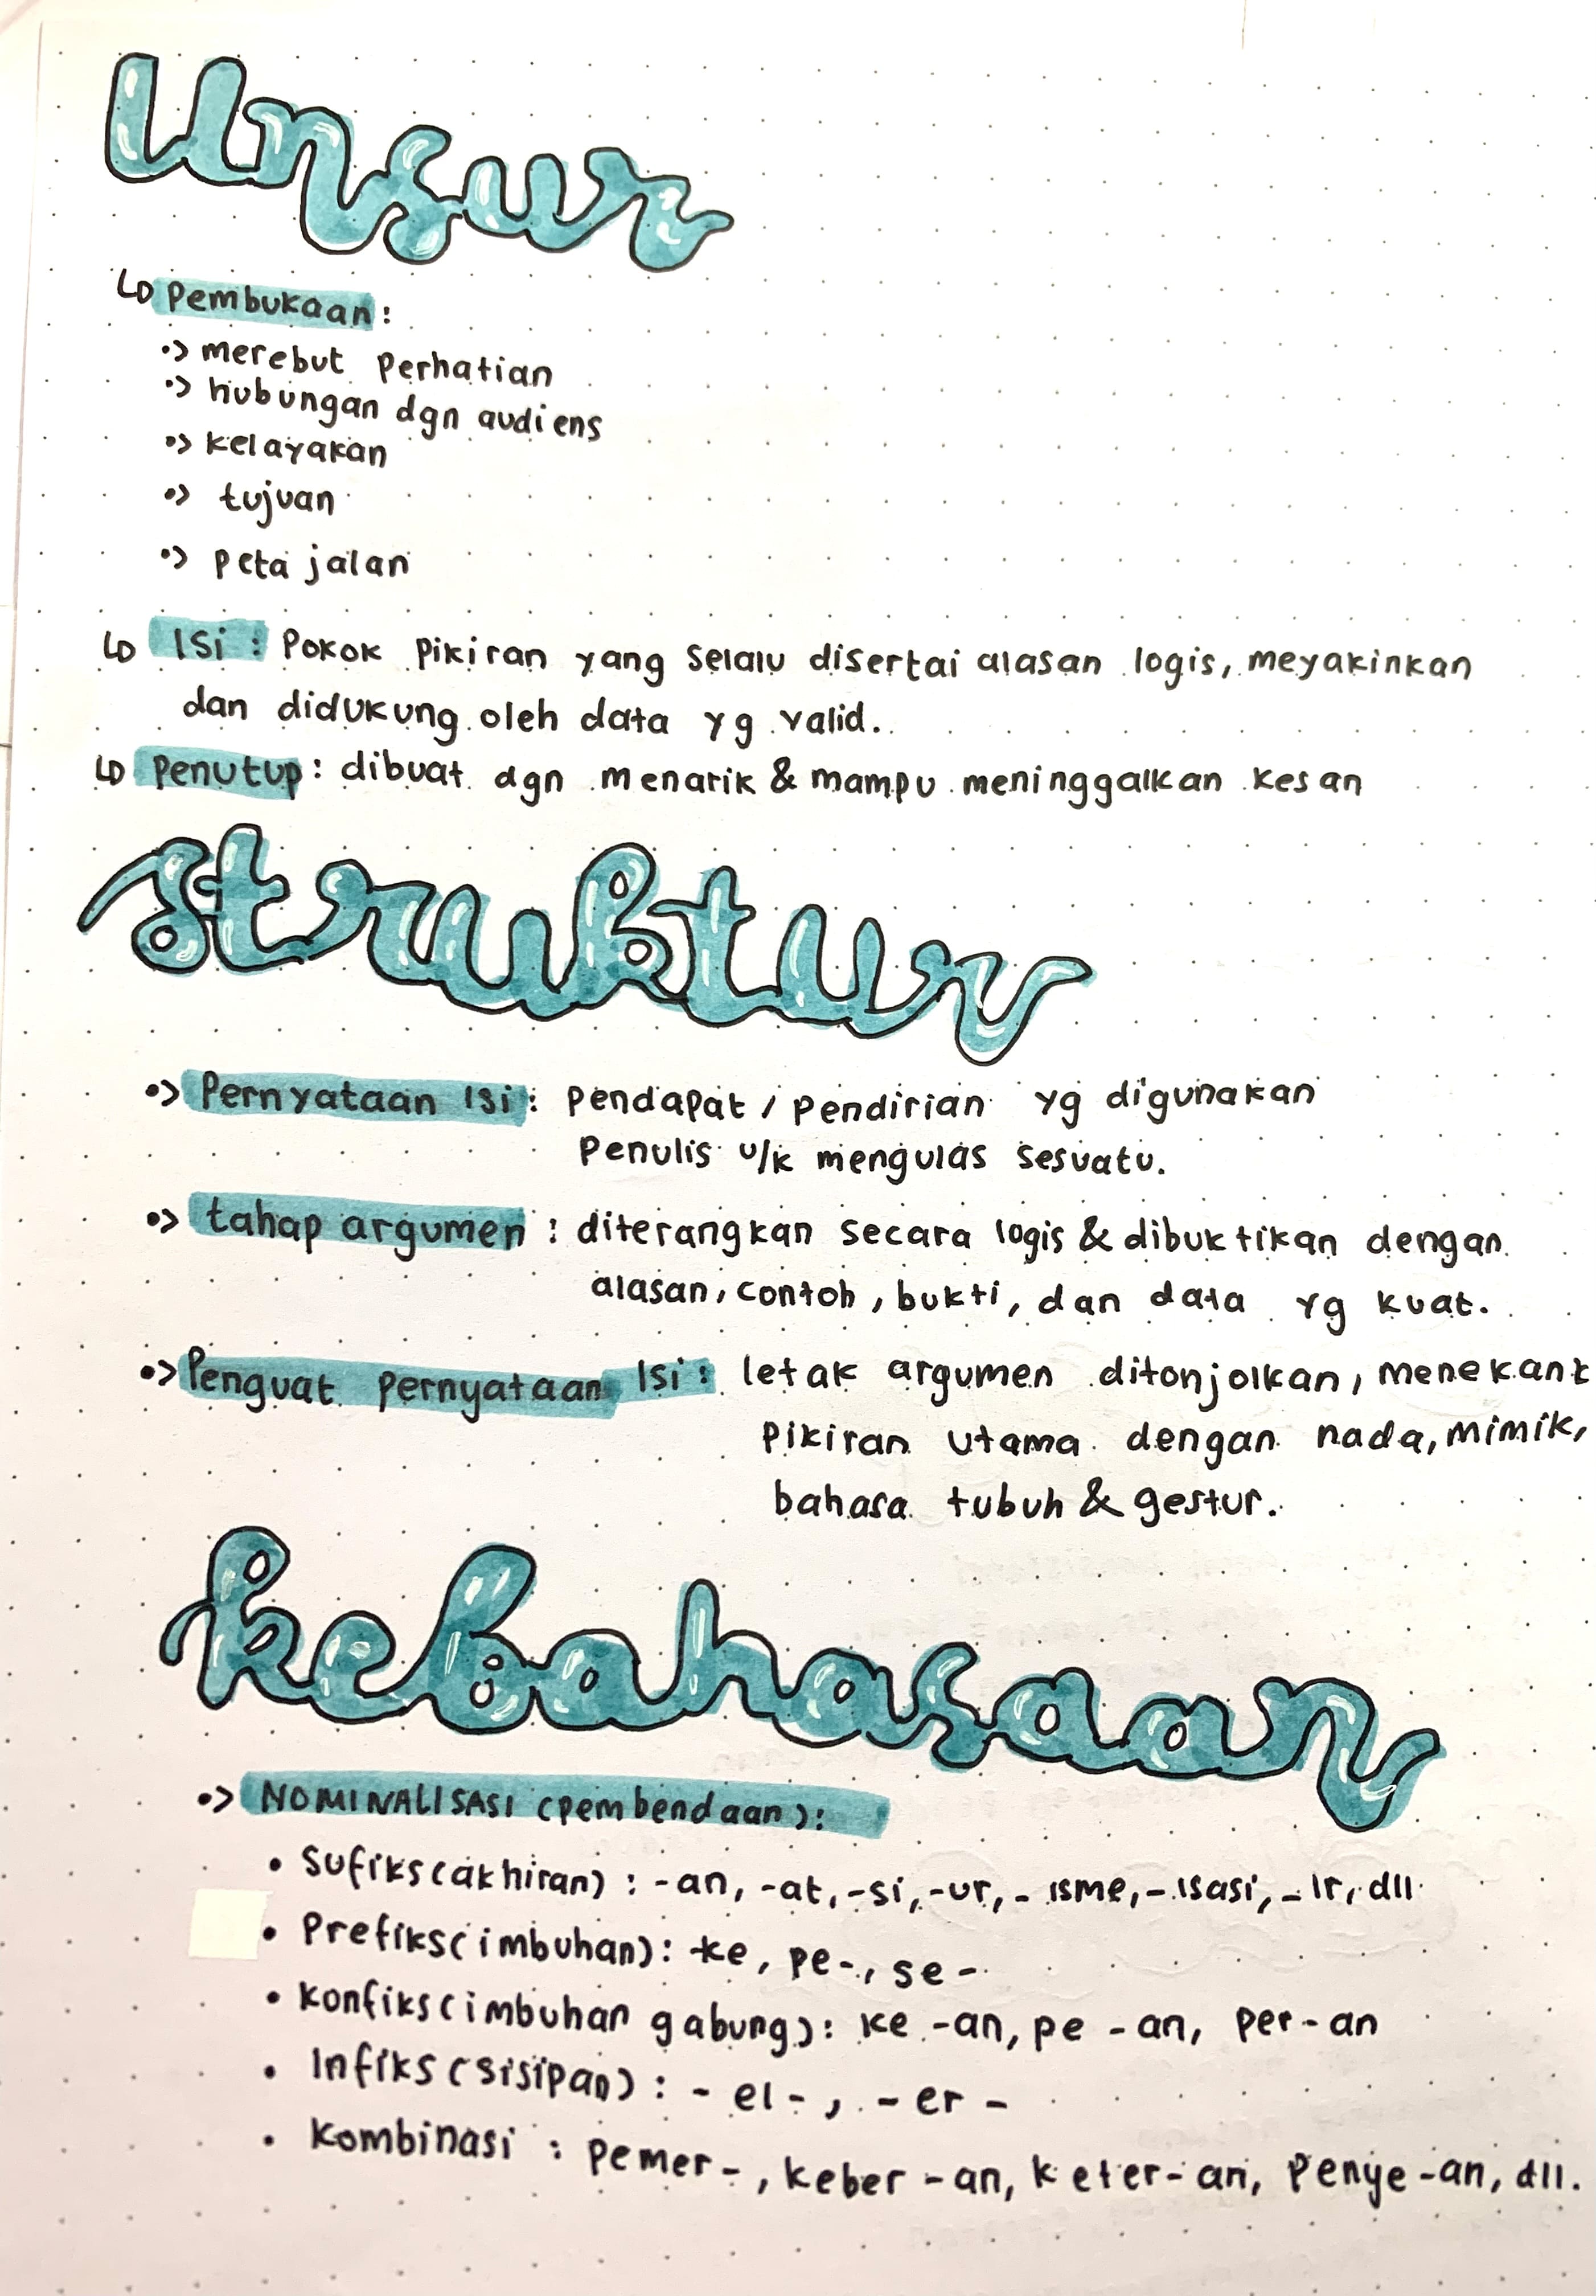 Unsur
↳ Pembukaan :
•> merebut perhatian
•> hubungan dgn audiens
•> kelayakan
•> tujuan
•> peta jalan
↳ Isi : Pokok pikiran yang selalu disertai alasan logis, meyakinkan
dan didukung oleh data yg valid.
↳ Penutup : dibuat dgn menarik & mampu meninggalkan kesan
struktur
•> Pernyataan Isi : pendapat / pendirian yg digunakan
Penulis u/k mengulas sesuatu.
•> tahap argumen : diterangkan secara logis & dibuktikan dengan
alasan, contoh, bukti, dan data yg kuat.
•> Penguat pernyataan Isi : letak argumen ditonjolkan, menekan
pikiran utama dengan nada, mimik,
bahasa tubuh & gestur.
kebahasaan
•> NOMINALISASI (pembendaan) :
• Sufiks (akhiran) : -an, -at, -si, -ur, -isme, -isasi, -ir, dll
• Prefiks (imbuhan) : ke, pe-, se-
• konfiks (imbuhan gabung) : ke -an, pe -an, per-an
• Infiks (sisipan) : -el-, -er-
• kombinasi : pemer-, keber -an, keter-an, penye-an, dll.